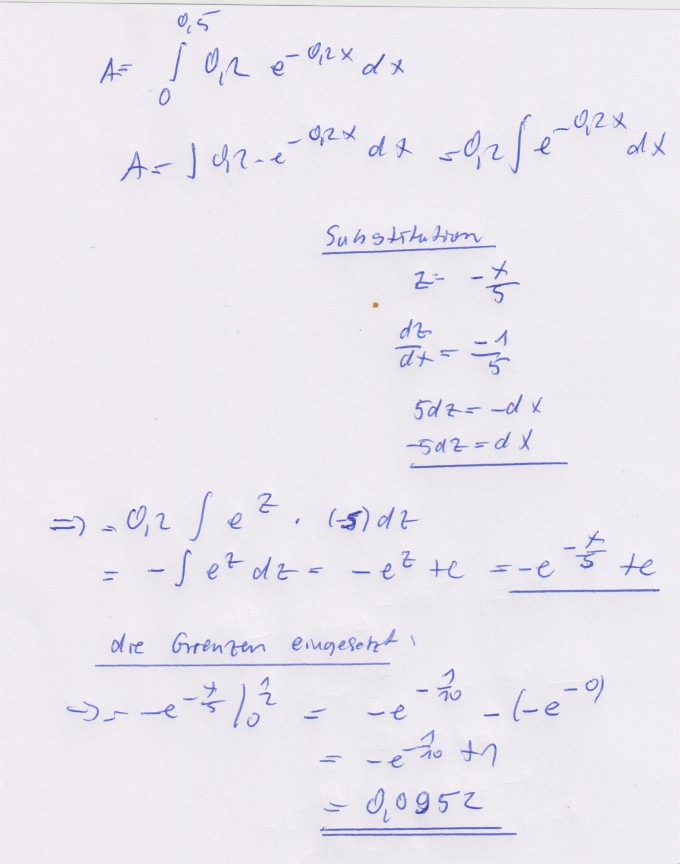 A= ∫₀^0,5 0,2 e^-0,2x dx
A= ∫ 0,2 · e^-0,2x dx = 0,2 ∫ e^-0,2x dx
Substitution
z = -x/5
dz/dx = -1/5
5dz = -dx
-5dz = dx
=> = 0,2 ∫ e^z · (-5) dz
= - ∫ e^z dz = -e^z + c = -e^-x/5 + c
die Grenzen eingesetzt:
=> = -e^-x/5 |₀^1/2 = -e^-1/10 - (-e^-0)
= -e^-1/10 + 1
= 0,0952